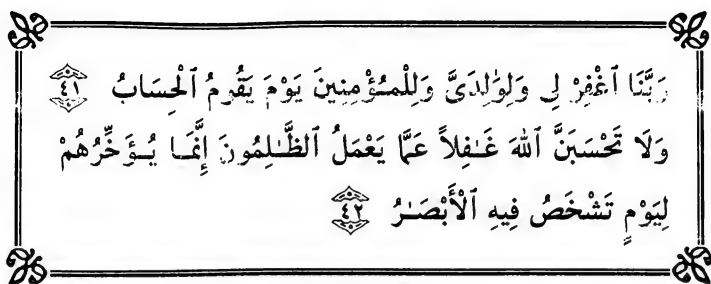 رَبَّنَا ٱغْفِرْ لِى وَلِوَٰلِدَىَّ وَلِلْمُؤْمِنِينَ يَوْمَ يَقُومُ ٱلْحِسَابُ ٤١
وَلَا تَحْسَبَنَّ ٱللَّهَ غَـٰفِلاً عَمَّا يَعْمَلُ ٱلظَّـٰلِمُونَ إِنَّمَا يُؤَخِّرُهُمْ
لِيَوْمٍ تَشْخَصُ فِيهِ ٱلْأَبْصَـٰرُ ٤٢